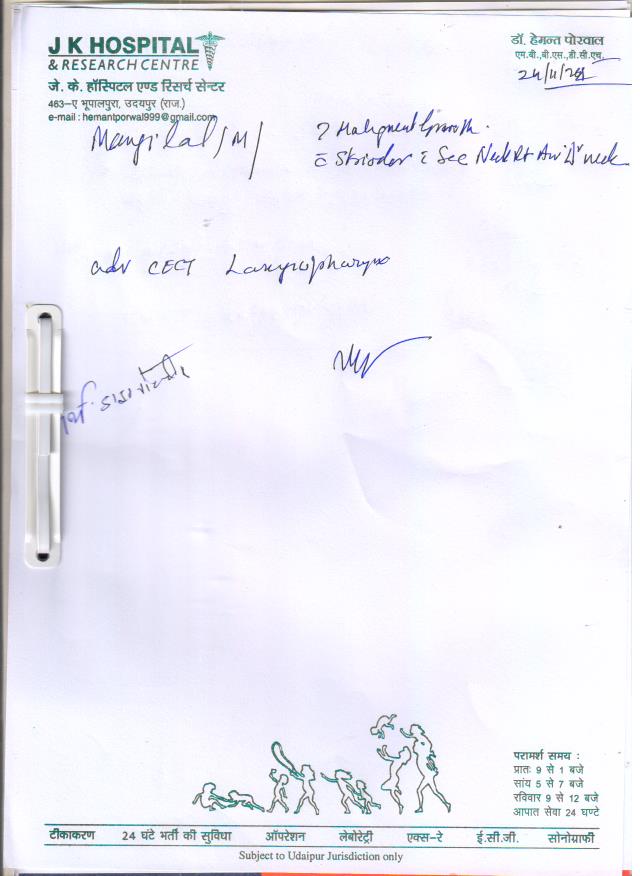 J K HOSPITAL
& RESEARCH CENTRE
जे. के. हॉस्पिटल एण्ड रिसर्च सेन्टर
463-ए भूपालपुरा, उदयपुर (राज.)
e-mail : hemantporwal999@gmail.com
डॉ. हेमन्त पोरवाल
एम.बी.,बी.एस.,डी.सी.एच.
Mangilal / M /
? Malignant Growth.
c̄ Stridor c̄ Sec Neck Rt
neck
adv CECT Laryngopharynx
परामर्श समय :
प्रातः 9 से 1 बजे
सांय 5 से 7 बजे
रविवार 9 से 12 बजे
आपात सेवा 24 घण्टे
टीकाकरण 24 घंटे भर्ती की सुविधा ऑपरेशन लेबोरेट्री एक्स-रे ई.सी.जी. सोनोग्राफी
Subject to Udaipur Jurisdiction only